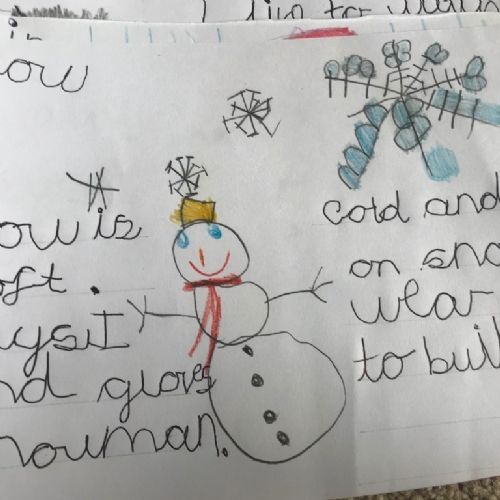 I to
now
ow is cold and
oft. on sno
ays I wear
nd gloves to buil
nowman.